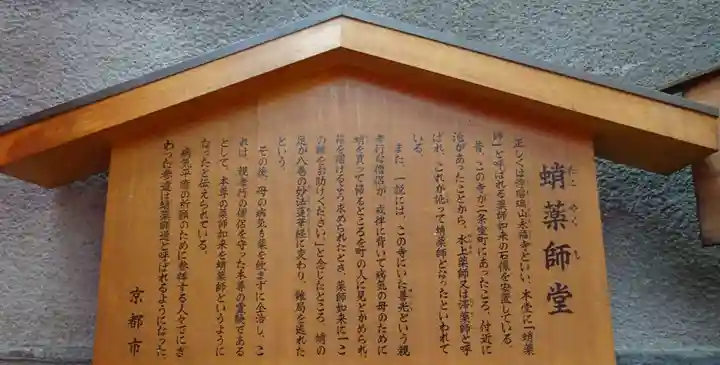 蛸薬師堂
たこやくし
正しくは浄瑠璃山永福寺といい、本堂に「蛸薬
師」と呼ばれる薬師如来の石像を安置している。
昔、この寺が二条室町にあったころ、付近に
池があったことから、水上薬師又は澤薬師と呼
ばれ、これが訛って蛸薬師となったといわれて
いる。
また、一説には、この寺にいた善光という親
孝行な僧侶が、戒律に背いて病気の母のために
蛸を買って帰るところを町の人に見とがめられ、
箱を開けるよう求められたとき、薬師如来に「こ
の難をお助けください。」と念じたところ、蛸の
足が八巻の妙法蓮華経に変わり、難局を逃れた
という。
その後、母の病気も薬を飲まずに全治し、こ
れは、親孝行の僧侶を守った本尊の霊験である
として、本尊の薬師如来を蛸薬師というように
なったと伝えられている。
病気平癒の祈願のために参拝する人々でにぎ
わった参道は蛸薬師通と呼ばれるようになった。
京都市